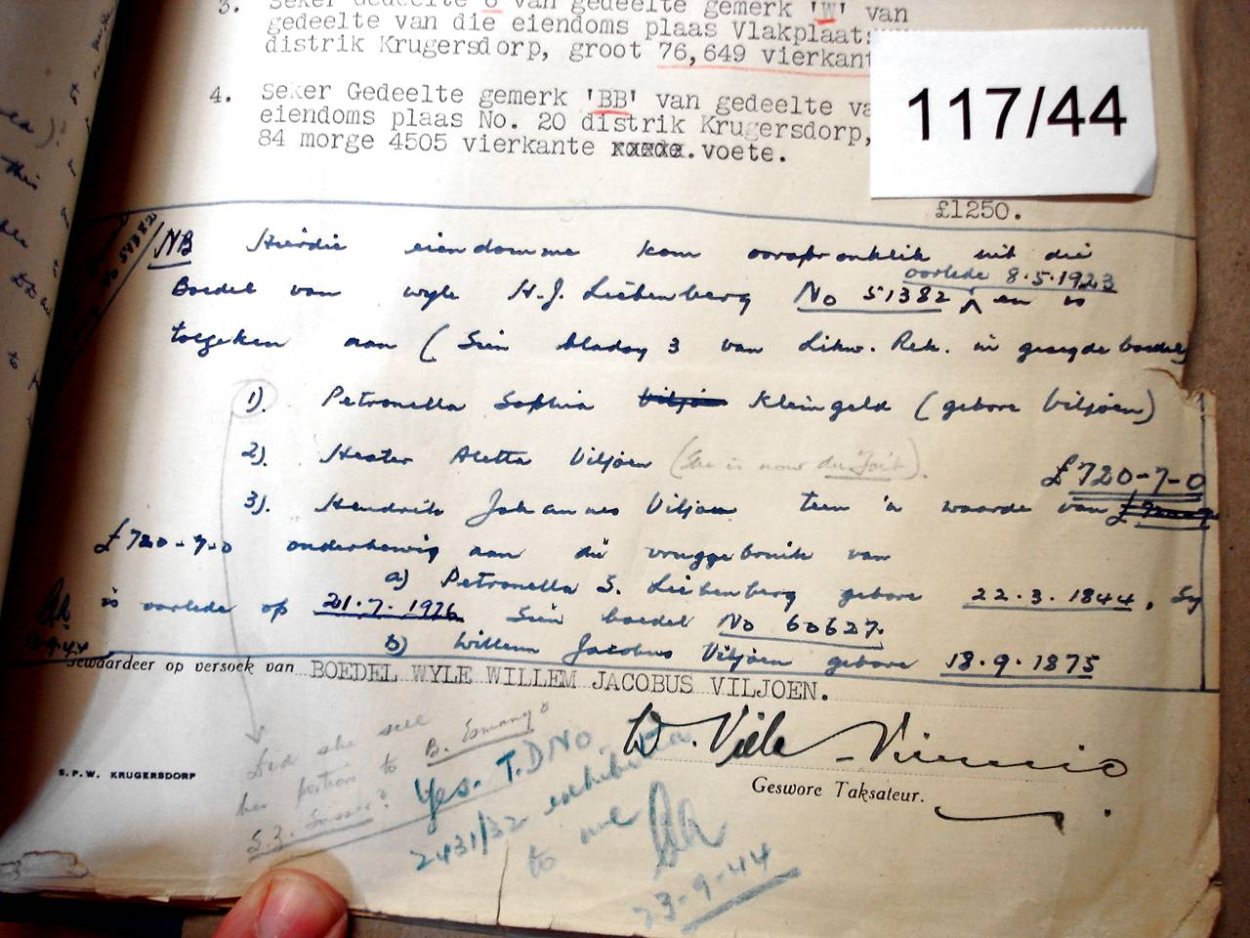 3. Seker Gedeelte 6 van gedeelte gemerk 'W' van
gedeelte van die eiendoms plaas Vlakplaats
distrik Krugersdorp, groot 76,649 vierkant
4. Seker Gedeelte gemerk 'BB' van gedeelte va
eiendoms plaas No. 20 distrik Krugersdorp,
84 morge 4505 vierkante xxxxx.voete.
117/44
£1250.
NB Hierdie eiendomme kom oorspronklik uit die
oorlede 8.5.1923
Boedel van wyle H.J. Liebenberg No 51382 ^ en is
toegeken aan (Sien bladsy 3 van Likw. Rek. in gesegde boedel)
1). Petronella Sophia Viljoen Kleingeld (gebore Viljoen)
2). Hester Aletta Viljoen (She is now du Toit).
£720-7-0
3). Hendrik Johannes Viljoen teen 'n waarde van
£720-7-0 onderhewig aan die vruggebruik van
a) Petronella S. Liebenberg gebore 22.3.1844, Sy
is oorlede op 21.7.1926 Sien boedel No 60627.
b) Willem Jacobus Viljoen gebore 18.9.1875
Gewaardeer op versoek van BOEDEL WYLE WILLEM JACOBUS VILJOEN.
Did she sell
her portion to B. Esmany &
S.Z. Susser?
Yes. T.D No.
2431/32 exhibited
to me
23-9-44
S.P.W. KRUGERSDORP
Geswore Taksateur.